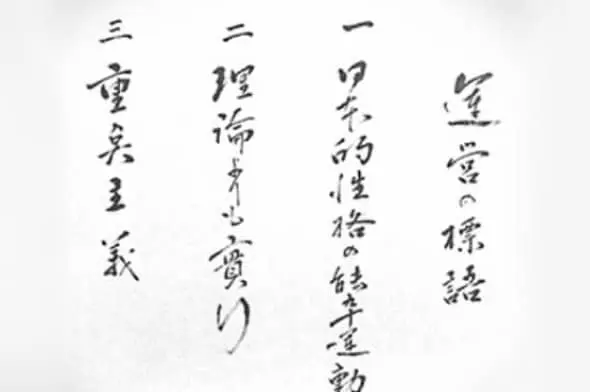 運営の標語
一 日本的性格の能率運動
二 理論よりも實行
三 重点主義